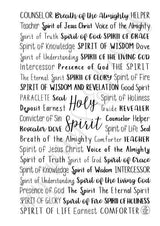 COUNSELOR Breath of the Almighty HELPER
Teacher Spirit of Jesus Christ Voice of the Almighty
Spirit of Truth Spirit of God SPIRIT OF GRACE
Spirit of Knowledge SPIRIT OF WISDOM Dove
Spirit of Understanding SPIRIT OF THE LIVING GOD
Intercessor Presence of God THE SPIRIT
The Eternal Spirit SPIRIT OF GLORY Spirit of Fire
SPIRIT OF WISDOM AND REVELATION Good Spirit
PARACLETE Seal Holy Spirit of Holiness
Deposit Earnest Spirit Guide REVEALER
Convicter of Sin Counselor Helper
Revealer Dove Spirit of Life Spirit of God
Breath of the Almighty Comforter TEACHER
Spirit of Jesus Christ VOICE OF THE ALMIGHTY
Spirit of Truth Spirit of God Spirit of Grace
Spirit of Knowledge Spirit of Wisdom INTERCESSOR
Spirit of Understanding Spirit of the Living God
Presence of God The Spirit The Eternal Spirit
SPIRIT OF GLORY Spirit of Fire SPIRIT OF HOLINESS
SPIRIT OF LIFE Earnest COMFORTER